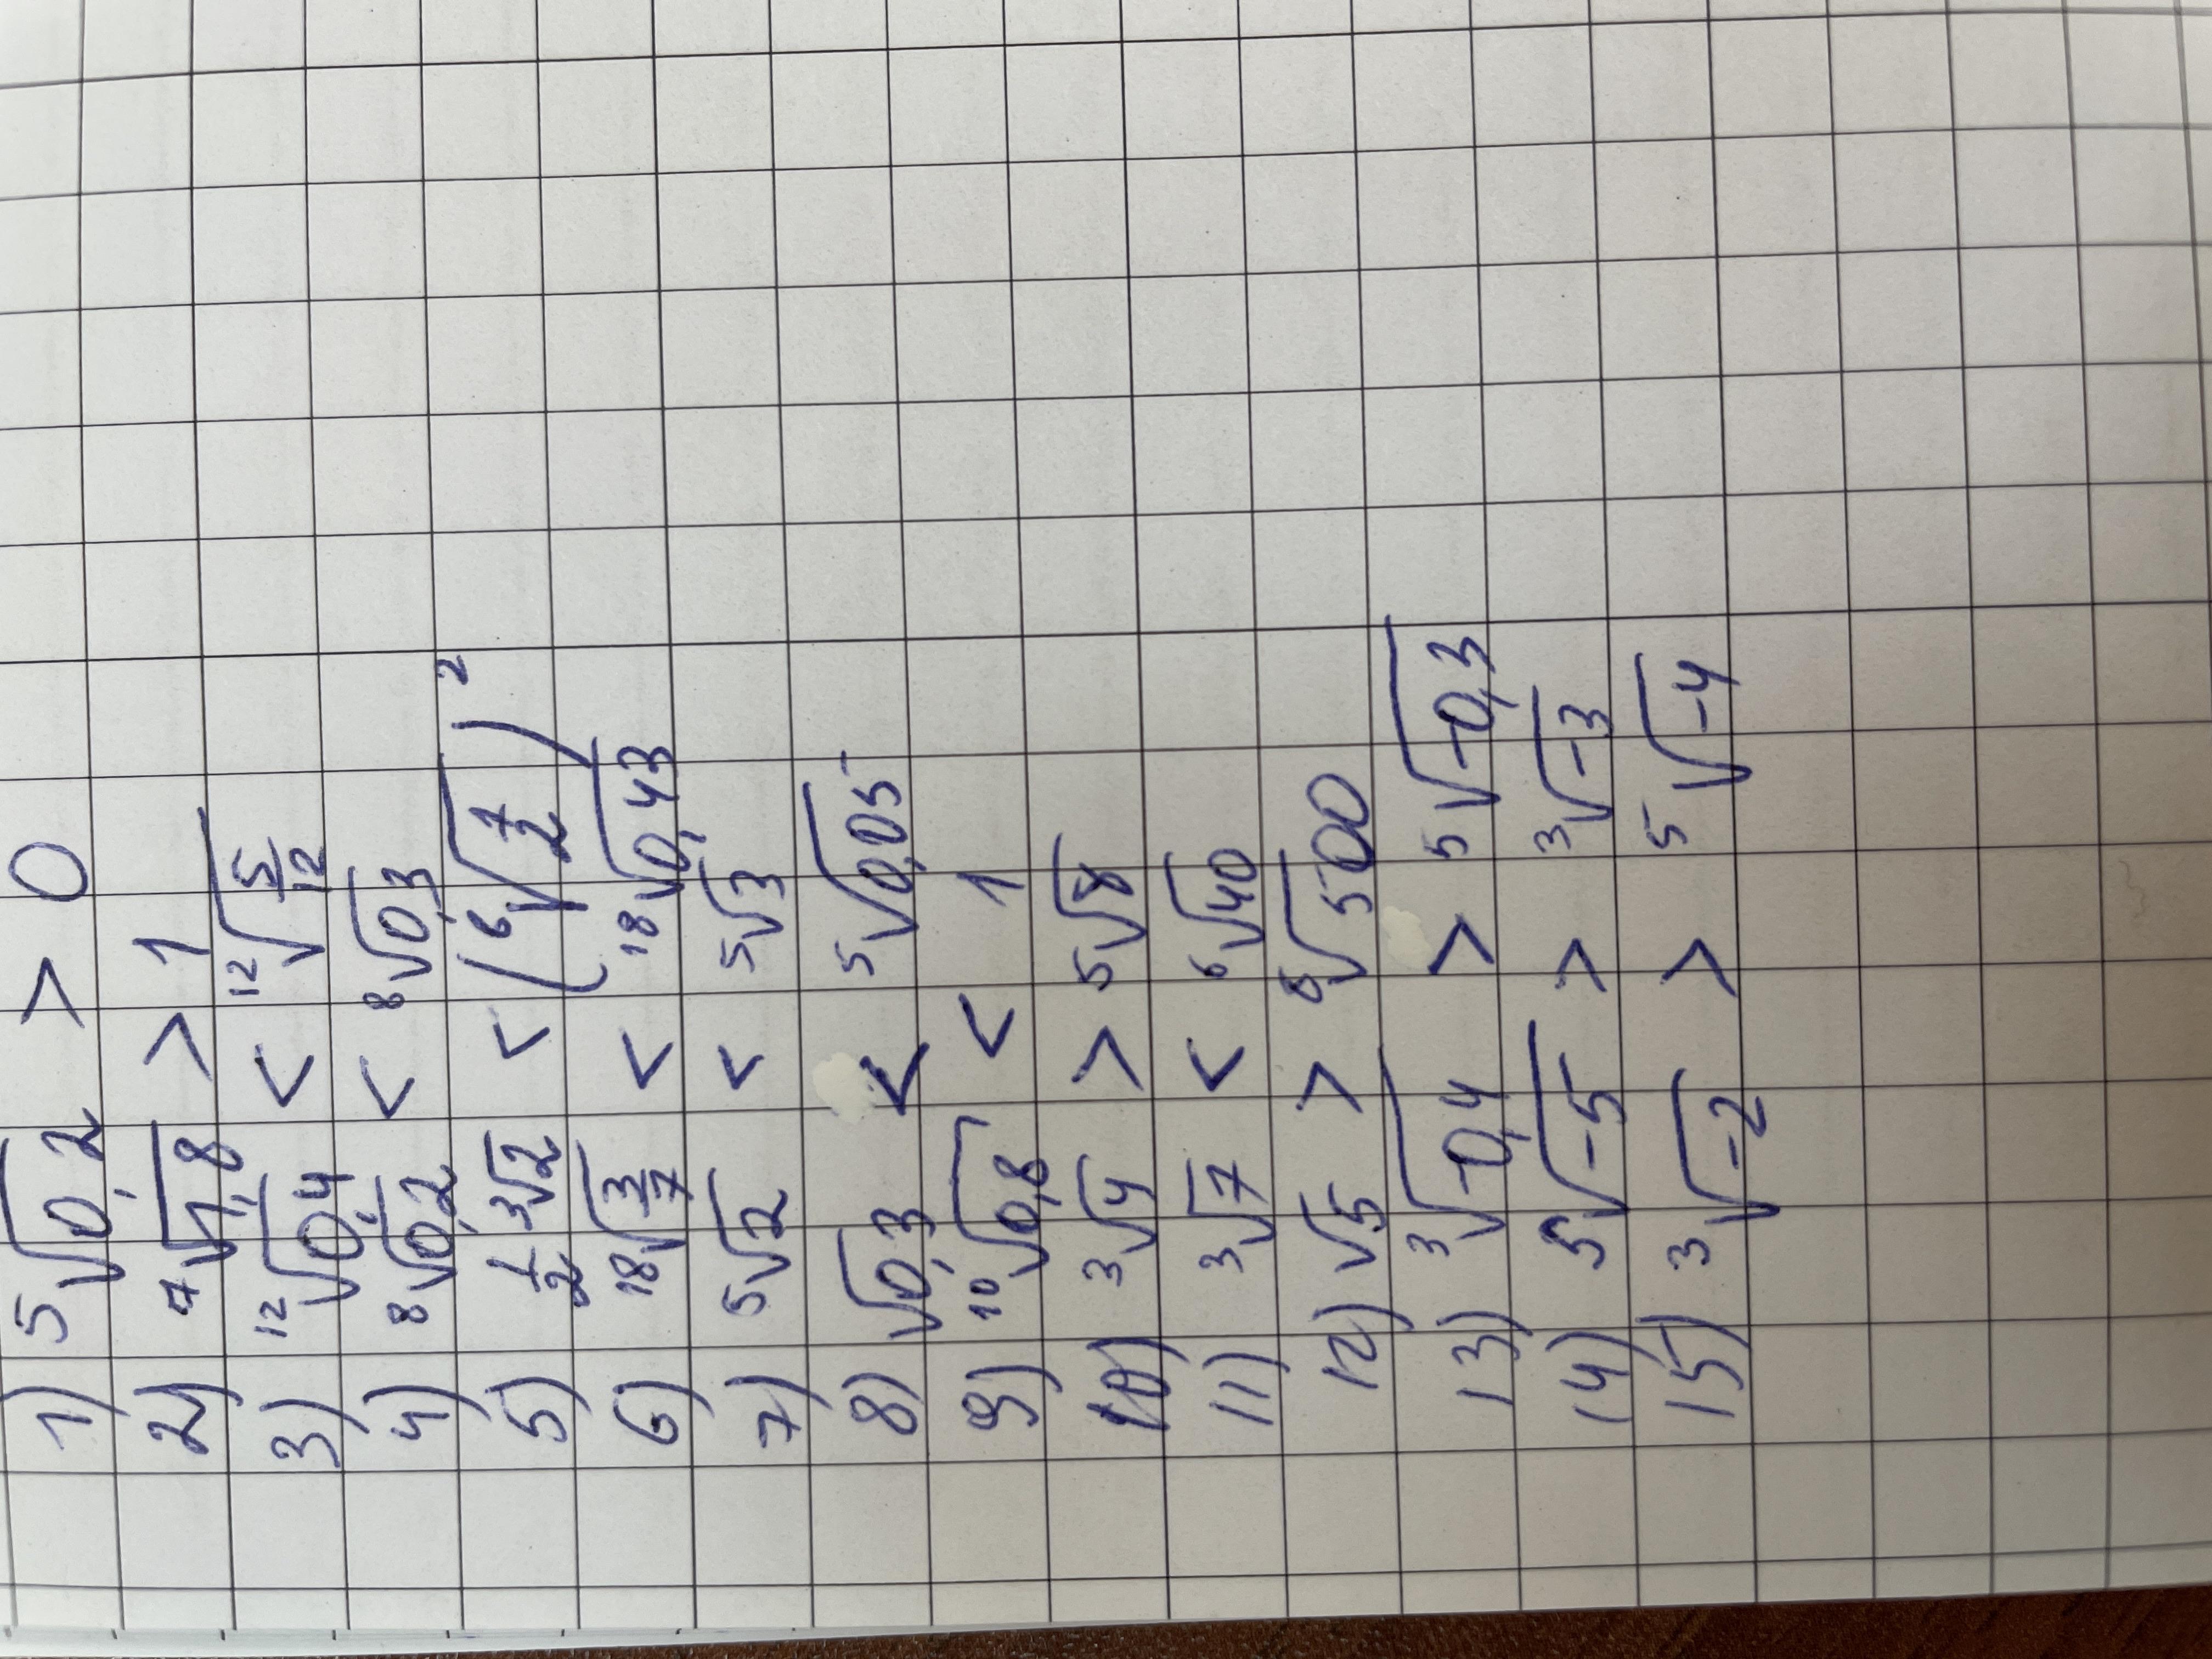 1) ⁵√0,2 > 0
2) ⁷√1,8 > 1
3) ¹²√0,4 < ¹²√5/12
4) ⁸√0,2 < ⁸√0,3
5) 1/2 ³√2 < (⁶√7/2)²
6) ¹⁸√3/7 < ¹⁸√0,43
7) ⁵√2 < ⁵√3
8) √0,3 < ⁵√0,05
9) ¹⁰√0,8 < 1
10) ³√4 > ⁵√8
11) ³√7 < ⁶√40
12) √5 > ⁸√500
13) ³√-0,4 > ⁵√-0,3
14) ⁵√-5 > ³√-3
15) ³√-2 > ⁵√-4